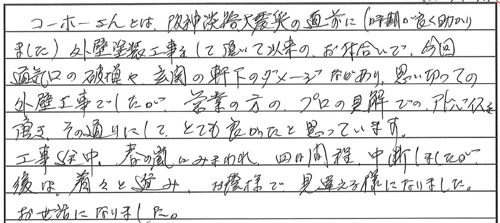 コーホーさんとは、阪神淡路大震災の直前に(時期が良く助かり
ました)外壁塗装工事をして頂いて以来の、お付合いで、今回
通気口の破損や玄関の軒下のダメージなどがあり、思い切っての
外壁工事でしたが、営業の方の、プロの見解での、アドバイスを
頂き、その通りにして、とても良かったと思っています。
工事途中、春の嵐にみまわれ、四日間程、中断しましたが、
後は、着々と進み、お陰様で、見違える様になりました。
お世話になりました。